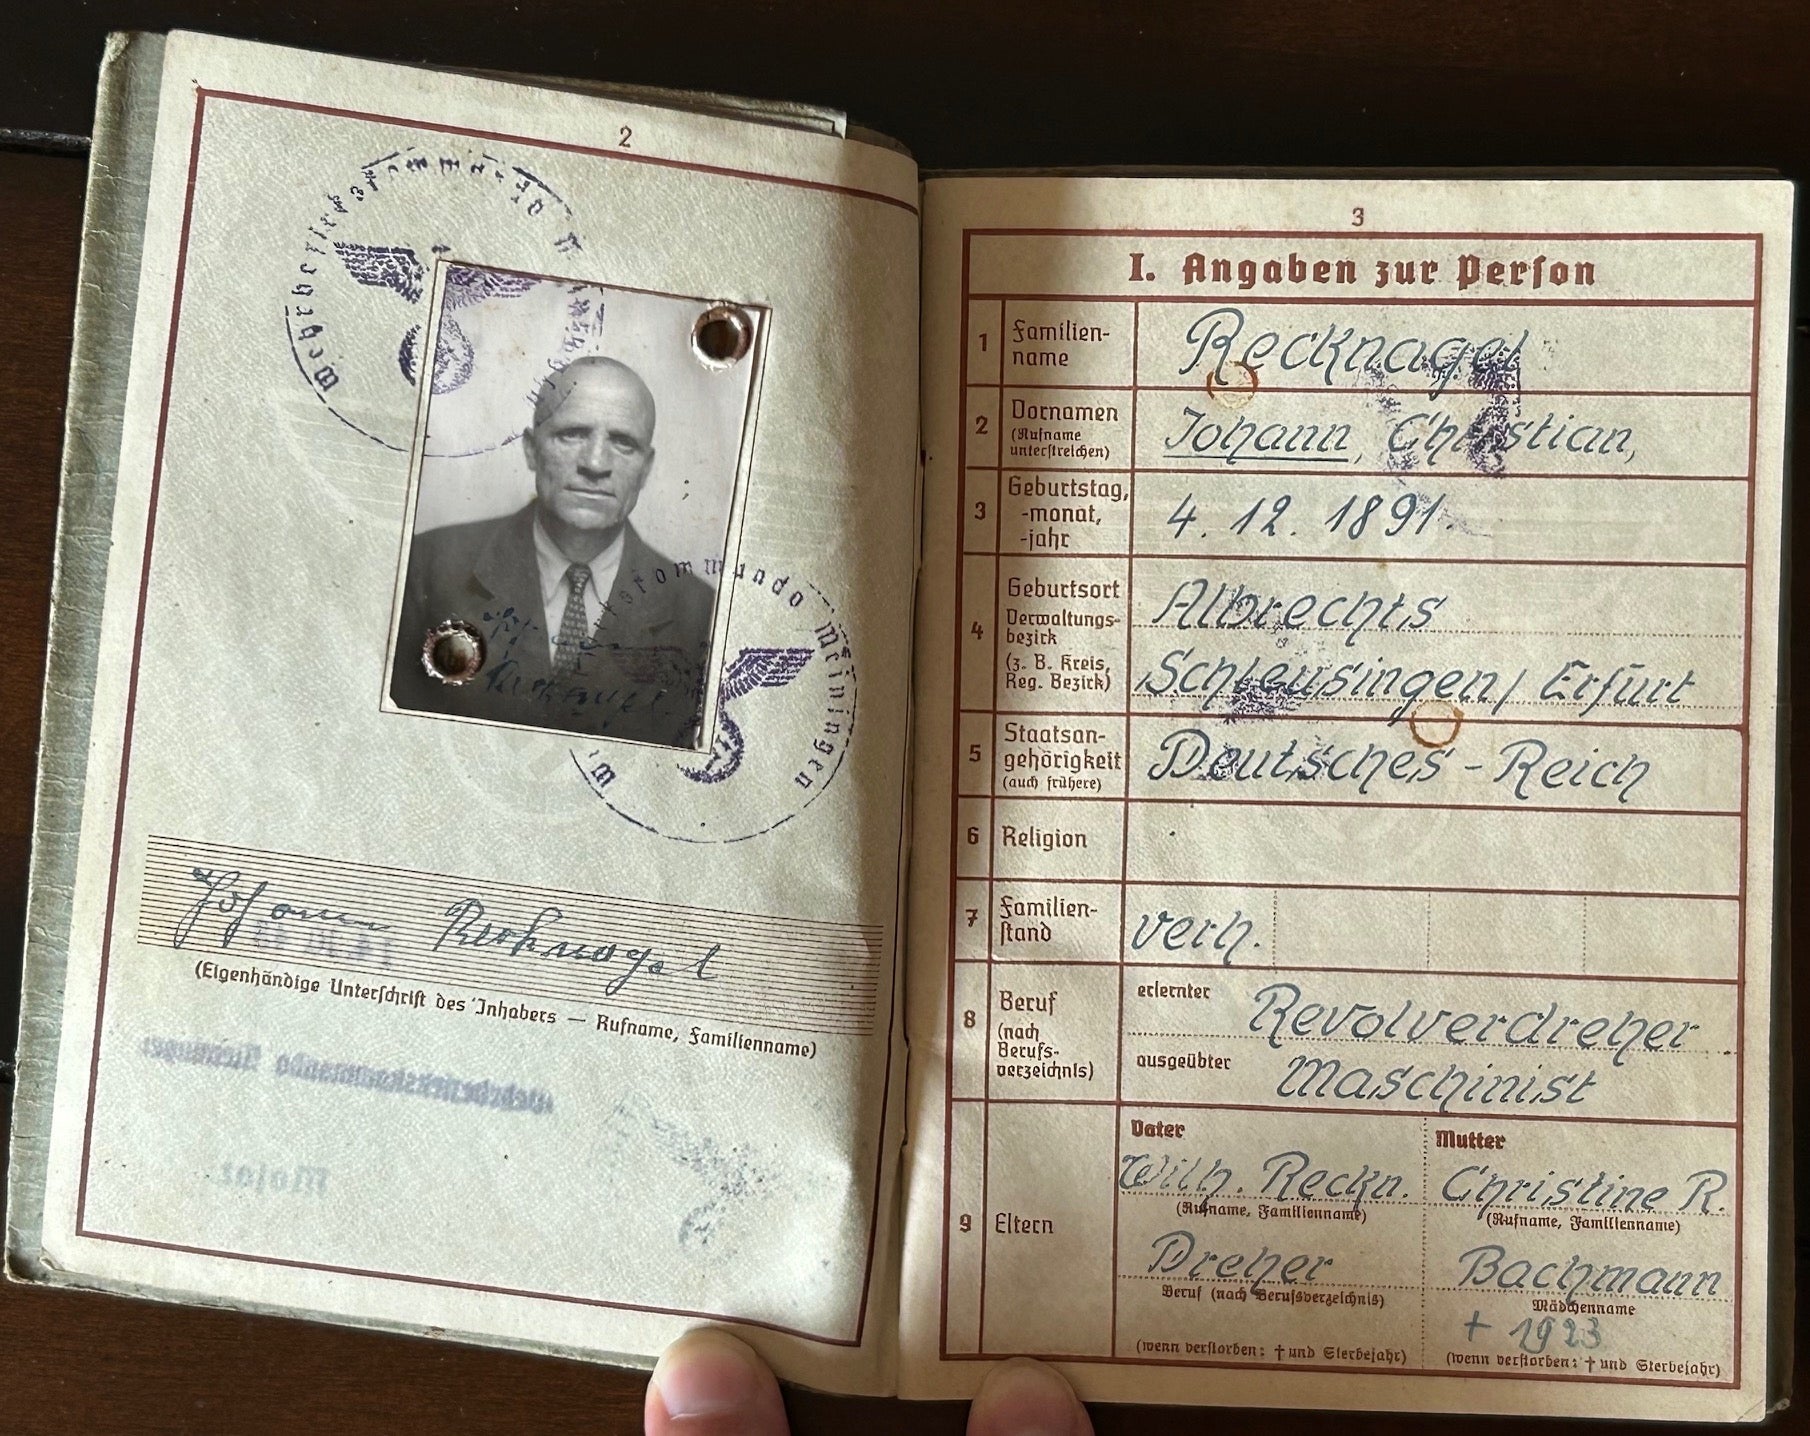 2
Wehrbezirkskommando Meiningen
Johann Recknagel
(Eigenhändige Unterschrift des Inhabers — Rufname, Familienname)
Wehrbezirkskommando Meiningen
Major
3
I. Angaben zur Person
1 Familien-
name
Recknagel
2 Vornamen
(Rufname
unterstreichen)
Johann, Christian,
3 Geburtstag,
-monat,
-jahr
4. 12. 1891.
4 Geburtsort
Verwaltungs-
bezirk
(z. B. Kreis,
Reg. Bezirk)
Albrechts
Schleusingen/ Erfurt
5 Staatsan-
gehörigkeit
(auch frühere)
Deutsches-Reich
6 Religion
7 Familien-
stand
verh.
8 Beruf
(nach
Berufs-
verzeichnis)
erlernter Revolverdreher
ausgeübter Maschinist
9 Eltern
Vater
Wilh. Reckn.
(Rufname, Familienname)
Dreher
Beruf (nach Berufsverzeichnis)
(wenn verstorben: † und Sterbejahr)
Mutter
Christine R.
(Rufname, Familienname)
Bachmann
Mädchenname
† 1923
(wenn verstorben: † und Sterbejahr)